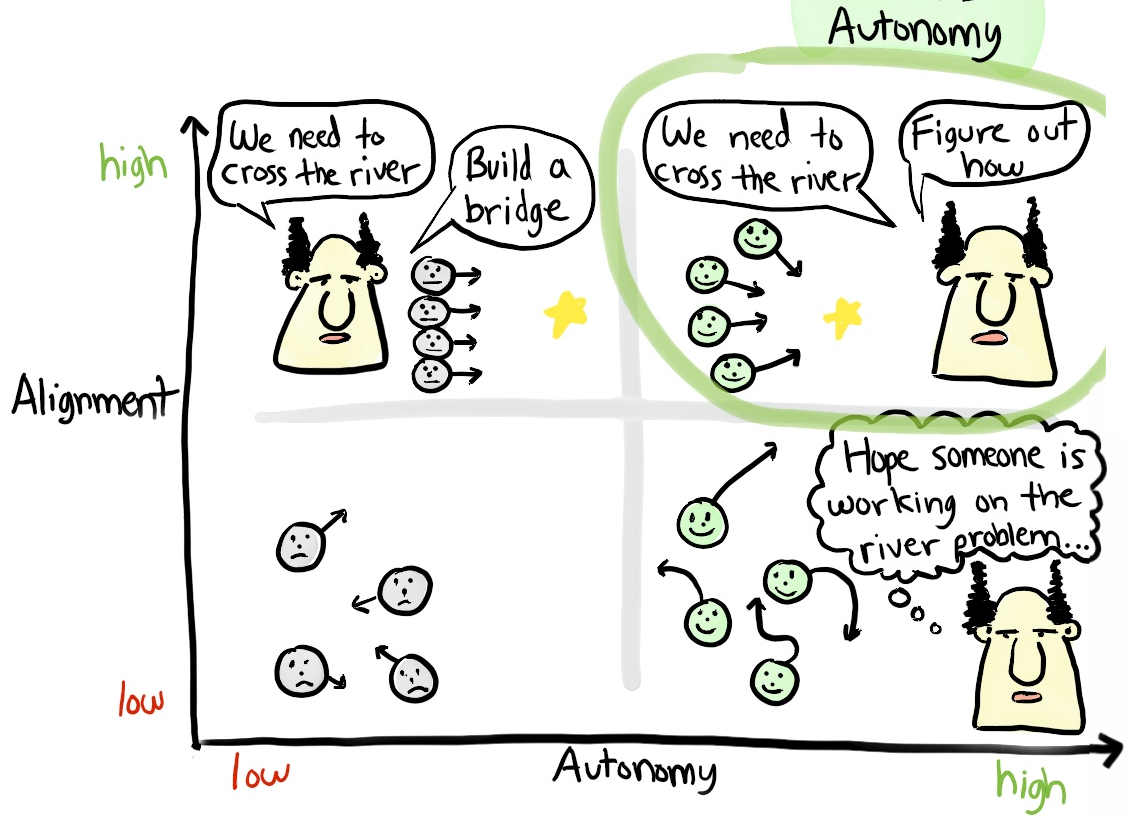 Autonomy
We need to
cross the river
Build a
bridge
We need to
cross the river
Figure out
how
high
Alignment
Hope someone is
working on the
river problem...
low
low
Autonomy
high